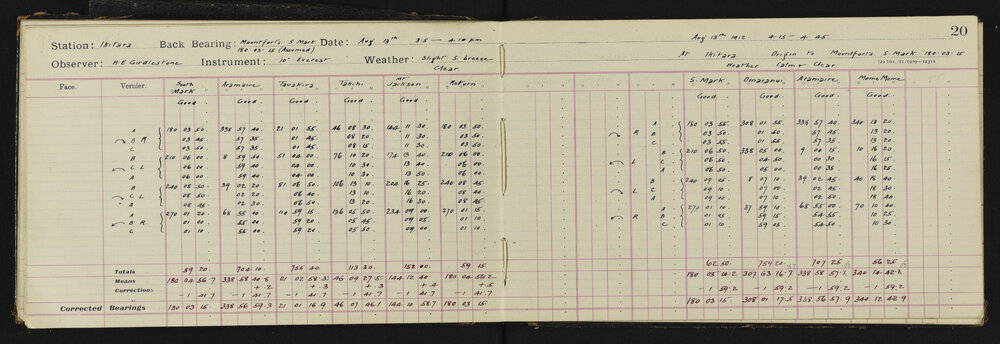 20
Station: Ikitara Back Bearing: Mountfort's S. Mark Date: Aug 13th 3.5 — 4.10 pm
180 03 15 (Assumed)
Observer: H E Girdlestone Instrument: 10" Everest Weather: Slight S breeze
Clear.
Aug 13th 1912 4.15 — 4.45
At Ikitara Origin to Mountfort's S. Mark 180.03.15
Weather Calm & Clear
Face. Vernier. South Mark Aramaire Tauakira Takihi Mt Jackson Return S. Mark Omaranui Aramaire MomeMome
Good Good. Good. Good. Good. Good. Good. Good. Good. Good.
A 180 03 50. 338 57 40. 21 01 55. 46 08 30. 144 11 30. 180 03 50. A 180 03 55. 308 01 55. 338 57 40. 340 13 20
B R 03 45. 57 35. 01 45. 08 20. 11 30. 03 50. R B 03 50. 01 50. 57 45. 13 20.
C 03 50. 57 35. 01 45. 08 15. 11 30. 03 50. C 03 50. 01 55. 57 35. 13 20.
B 210 06 00. 8 59 50. 51 04 00. 76 10 20. 174 13 40. 210 06 00. B 210 06 50. 338 05 00. 9 00 15. 10 16 20
C L 06 00. 59 40. 04 00. 10 30. 13 40. 06 00. L C 06 50. 04 50. 00 30. 16 15.
A 06 00. 59 40. 04 00. 10 30. 13 50. 06 00. A 06 55. 05 00. 00 30. 16 25.
B 240 08 50. 39 02 20. 81 06 50. 106 13 10. 204 16 25. 240 08 45. B 240 09 25. 8 07 10. 39 02 45. 40 18 40.
C L 08 50. 02 20. 06 40. 13 10. 16 20. 08 40. C 09 10. 07 00. 02 45. 18 30.
A 08 45. 02 30. 06 50. 13 20. 16 30. 08 45. A 09 10. 07 10. 02 50. 18 40.
A 270 01 20. 68 55 40. 110 59 15. 136 05 50. 234 09 00. 270 01 15. A 270 01 10. 37 59 10. 68 55 00. 70 10 40.
B R 01 20. 55 00. 59 20. 05 45. 09 05. 01 10. R B 01 05. 59 15. 54 55. 10 25.
C 01 10. 55 00. 59 20. 05 50. 09 00. 01 10. C 01 10. 59 05. 54 50. 10 30.
Totals 59 20. 704.10. 755 40. 113 30. 152 00. 59 15 62 50. 759 20. 707 25. 56 25
Means 180 04 56.7 338 58 40.8 21 02 58.3 46 09 27.5 144 12 40. 180 04 56.2 180 05 14.2 307 63 16.7 338 58 57.1 340 14 42.1
+.2 +.3 +.3 +.4 +.5
Corrections — 1 41.7 — 1 41.7 — 1 41.7 — 1 41.7 — 1 41.7 — 1 41.7 — 1 59.2 — 1 59.2 — 1 59.2 — 1 59.2
Corrected Bearings 180 03 15 338 56 59.3 21 01 16.9 46 07 46.1 144 10 58.7 180 03 15 180 03 15. 308 01 17.5 338 56 57.9 340 12 42.9